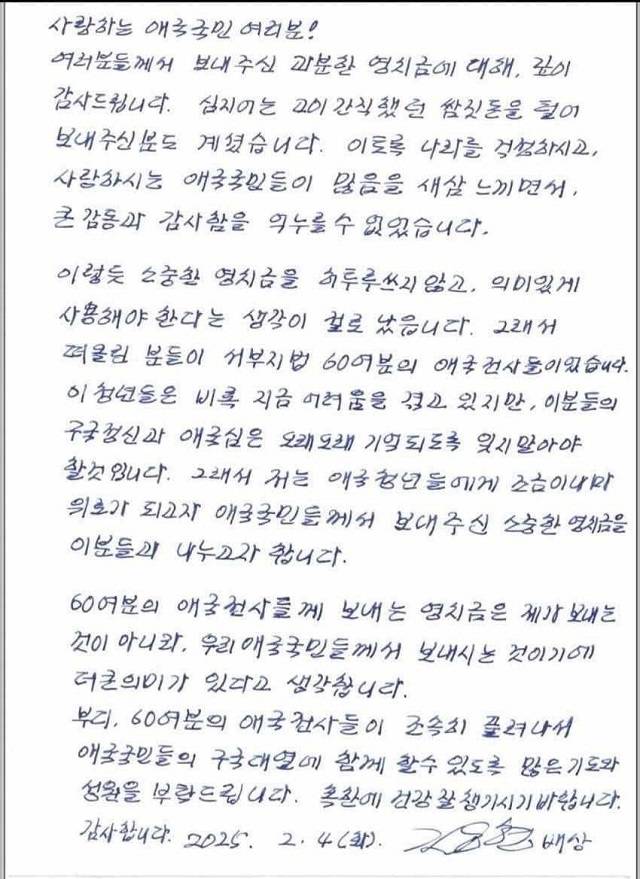 사랑하는 애국국민 여러분!
여러분들께서 보내주신 과분한 영치금에 대해, 깊이
감사드립니다. 심지어는 고이 간직했던 쌈짓돈을 털어
보내주신분도 계셨습니다. 이토록 나라를 걱정하시고,
사랑하시는 애국국민들이 많음을 새삼 느끼면서,
큰 감동과 감사함을 억누를수 없었습니다.
이렇듯 소중한 영치금을 허투루쓰지 않고, 의미있게
사용해야 한다는 생각이 절로 났습니다. 그래서
떠올린 분들이 서부지법 60여분의 애국전사들이었습니다.
이 청년들은 비록 지금 어려움을 겪고 있지만, 이분들의
구국정신과 애국심은 오래오래 기억되도록 잊지말아야
할것입니다. 그래서 저는 애국청년들에게 조금이나마
위로가 되고자 애국국민들께서 보내주신 소중한 영치금을
이분들과 나누고자 합니다.
60여분의 애국전사들께 보내는 영치금은 제가 보내는
것이 아니라, 우리 애국국민들께서 보내시는 것이기에
더큰의미가 있다고 생각합니다.
부디, 60여분의 애국전사들이 조속히 풀려나서
애국국민들의 구국대열에 함께 할수 있도록 많은기도와
성원을 부탁드립니다. 혹한에 건강 잘 챙기시기바랍니다.
감사합니다. 2025. 2. 4(화). 김용현 배상